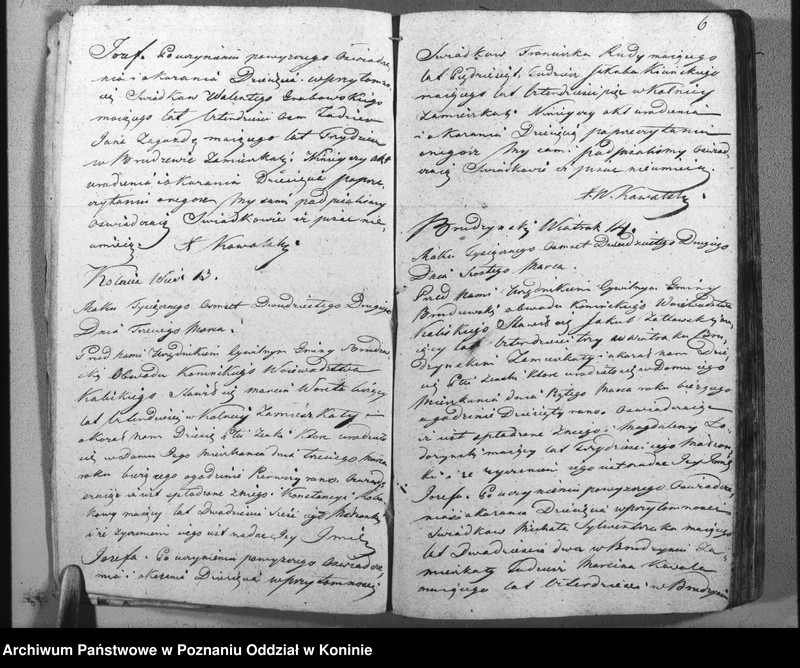 Jozef. Po uczynieniu powyższego Oswiadcze
nia i okazania Dziecięcia w przytomno
sci Swiadkow Walentego Grabowskiego
maiącego lat Czterdzieści Osm Tudziez
Jana maiącego lat Trzydzieści
w Brudzewie Zamieszkali; Ninieyszy Akt
urodzenia i okazania Dziecięcia po prze
czytaniu onegoz My sami podpisalismy
oswiadczaią Swiadkowie iz pisac nie
umieią.
Kowalski
Kolnica Wies 13.
Roku Tysiącznego Osmset Dwudziestego Drugiego
Dnia Trzeciego Marca.
Przed Nami Urzędnikiem Cywilnym Gminy Brudzew
skiy Obwodu Konińskiego Woiewodztwa
Kaliskiego Stawił się Marcin liczący
lat Czterdzieści w Kolnicy Zamieszkały i
okazał Nam Dziecię Płci Zeński Ktore urodziło
się w Domu Jego mieszkania dnia trzeciego Marca
roku bieżącego o godzinie Pierwszy rano. Oswiad
czaiąc iz iest spłodzone z niego i Konstancyi
maiący lat Dwadziescia Sześć iego Małzonki
i ze zyczeniem iego iest nadac Jey Imie
Jozefa. Po uczynieniu powyższego Oswiadcze
nia i okazania Dziecięcia w przytomnosci
6
Swiadkow Franciszka Rudy maiącego
lat Pięćdziesiąt, Tudziez Jakuba
maiącego lat Czterdziesci pięć w Kolnicy
Zamieszkali; Ninieyszy akt urodzenia
i okazania Dziecięcia po przeczytaniu
onegoz My sami podpisalismy Oswiad
czaią Swiadkowie iz pisac nieumieią.
Kowalski
Brudzynski Wiatrak 14.
Roku Tysiącznego Osmset Dwudziestego Drugiego
Dnia Szostego Marca.
Przed Nami Urzędnikiem Cywilnym Gminy
Brudzewski obwodu Konińskiego Woiewodztwa
Kaliskiego Stawił się Jakub
lat Czterdziesci trzy w wiatraku Bru
dzynskim Zamieszkały i okazał nam Dzie
cię Płci Zenski Ktore urodziło się w Domu iego
Mieszkania dnia Piątego Marca roku bieżącego
o godzinie Dziesiąty rano. Oswiadczaiąc
iz iest spłodzone z niego i Magdaleny
maiący lat Trzydziesci iego Małzon
ki i ze zyczeniem iego iest nadac Jey Imie
Jozefa. Po uczynieniu powyższego Oswiadcze
nia i okazania Dziecięcia w przytomnosci
Swiadkow Michała Sylwestrzaka maiącego
lat Dwadziescia dwa w Brudzyniu Za
mieszkały Tudziez Marcina Kowala
maiącego lat Czterdziesci w Brudzyniu
Archiwum Państwowe w Poznaniu Oddział w Koninie